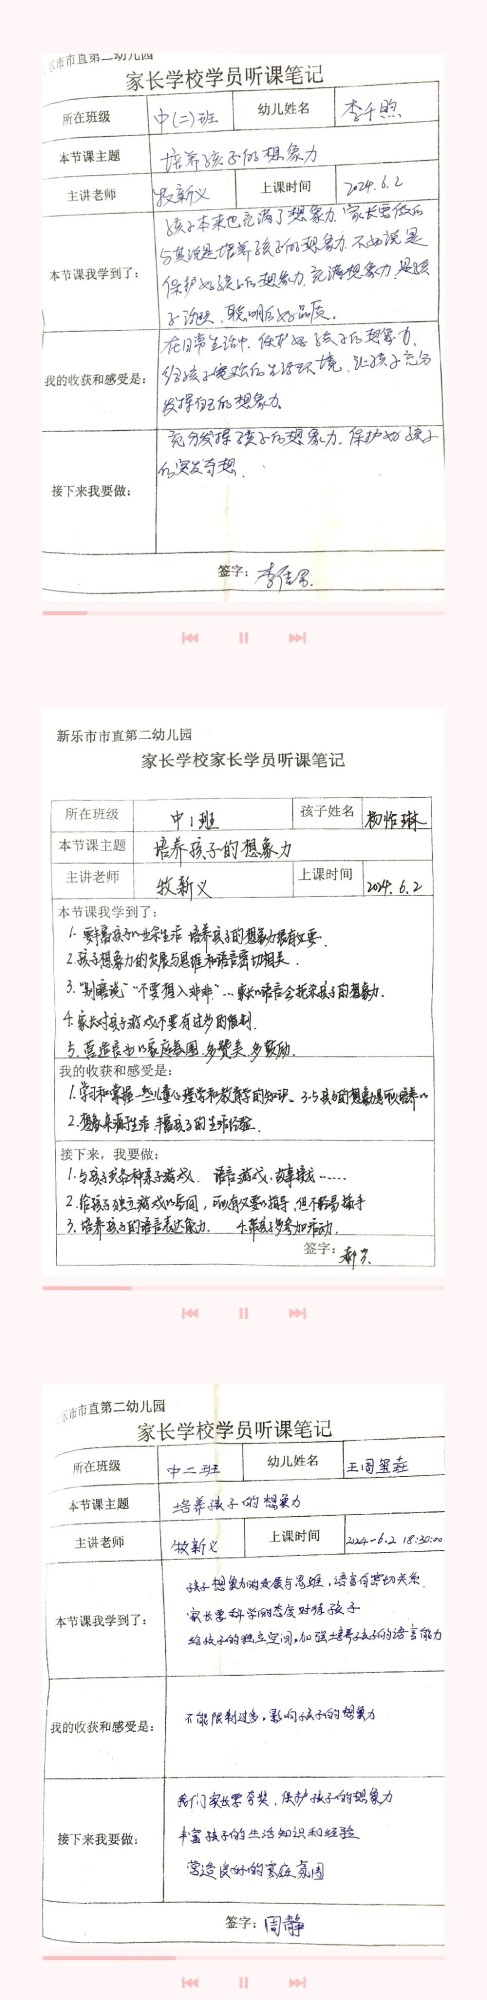 乐市市直第二幼儿园
家长学校学员听课笔记
所在班级 中(二)班 幼儿姓名 李千煦
本节课主题 培养孩子的想象力
主讲老师 牧新义 上课时间 2024.6.2
本节课我学到了:
孩子本来也充满了想象力,家长要做的
与其说是培养孩子的想象力,不如说是
保护好孩子的想象力,充满想象力,是孩
子 聪明的好品质。
我的收获和感受是:
在日常生活中,保护好孩子的想象力,
给孩子宽松的生活环境,让孩子充分
发挥自己的想象力。
接下来我要做:
充分发挥孩子的想象力,保护好孩子
的突发奇想.
签字:
新乐市市直第二幼儿园
家长学校家长学员听课笔记
所在班级 中1班 孩子姓名 杨怡琳
本节课主题 培养孩子的想象力
主讲老师 牧新义 上课时间 2024.6.2
本节课我学到了:
1. 要丰富孩子的日常生活 培养孩子的想象力很有必要.
2. 孩子想象力的发展与思维和语言密切相关.
3. "别瞎说""不要想入非非"…家长的语言会扼杀孩子的想象力.
4. 家长对孩子游戏不要有过多的限制.
5. 营造良好的家庭氛围,多赞美,多鼓励.
我的收获和感受是:
1. 学习和掌握一些儿童心理学和教育学的知识、 孩子的想象力是可以培养的
2. 想象来源于生活 丰富孩子的生活经验.
接下来,我要做:
1. 与孩子玩各种亲子游戏. 语言游戏、故事接龙……
2. 给孩子独立游戏的空间,可以有必要的指导,但不轻易插手
3. 培养孩子的语言表达能力. 4. 带孩子多参加活动.
签字:
乐市市直第二幼儿园
家长学校学员听课笔记
所在班级 中二班 幼儿姓名 王周玺垚
本节课主题 培养孩子的想象力
主讲老师 牧新义 上课时间 2024-6.2 18:30:00
本节课我学到了:
孩子想象力的发展与思维,语言有密切关系.
家长要科学的态度对待孩子
给孩子的独立空间,加强培养孩子的语言能力
我的收获和感受是:
不能限制过多,影响孩子的想象力
接下来我要做:
我们家长要夸奖、保护孩子的想象力
丰富孩子的生活知识和经验
营造良好的家庭氛围
签字: 周静